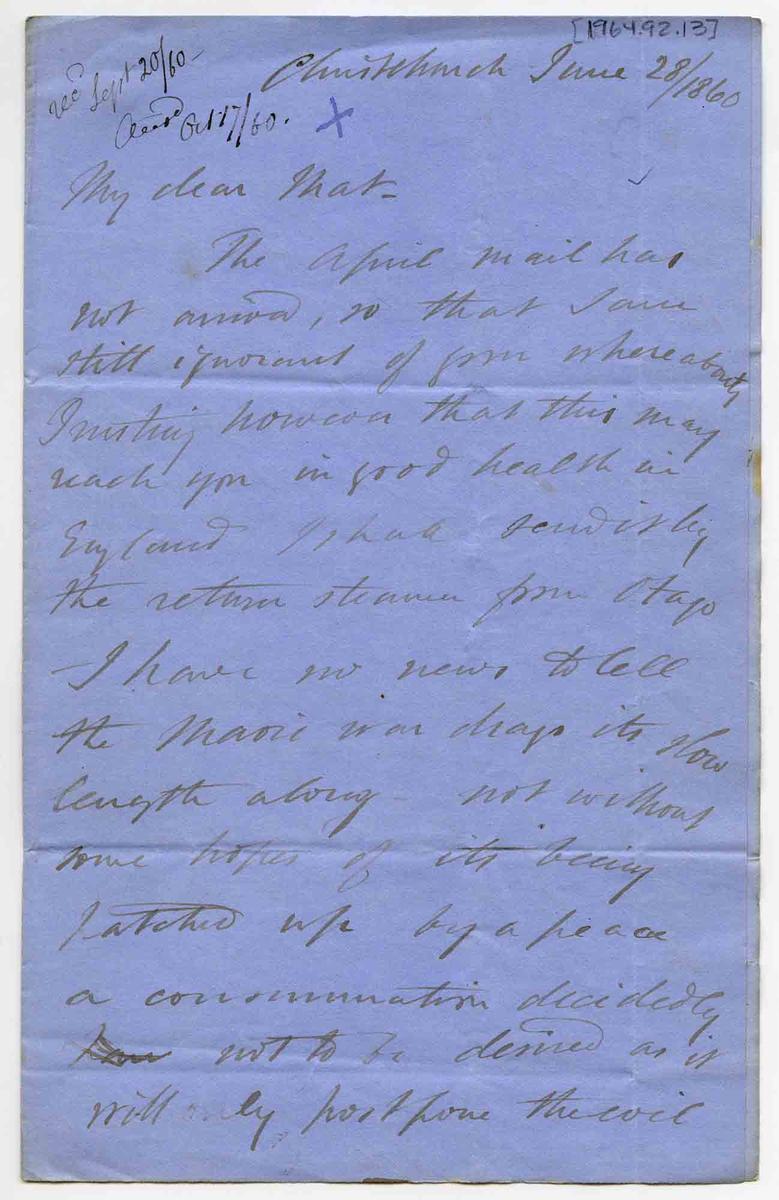 [1964.92.13]
recd Sept 20/60 -
Answd Oct 17/60.
Christchurch June 28/1860
My dear Mat -
The April mail has
not arrived, so that I am
still ignorant of your whereabouts
Trusting however that this may
reach you in good health in
England I shall send it by
the return steamer from Otago
- I have no news to tell
the Maori war drags its slow
length along - not without
some hopes of its being
patched up by a peace
a consummation decidedly
not to be desired as it
will only postpone the evil